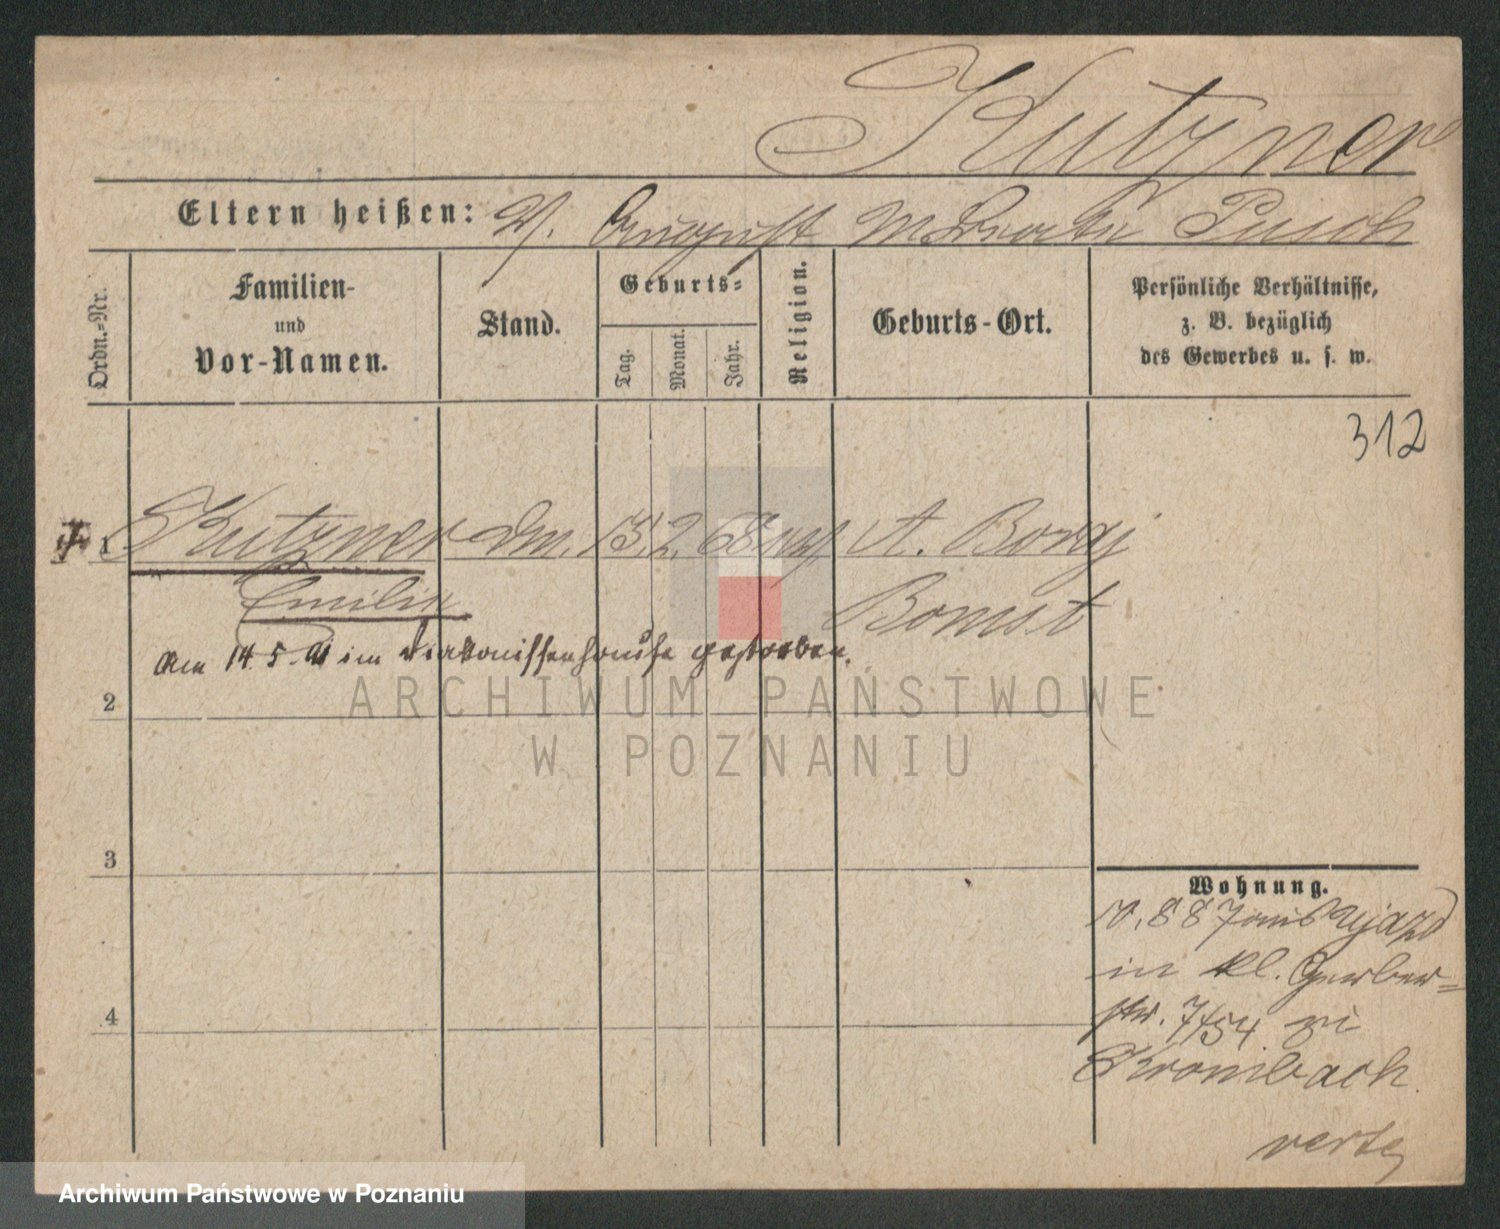 Kutzner
Eltern heißen: V. August M. Pusch
Ordn.-Nr.
Familien-
und
Vor-Namen.
Stand.
Geburts-
Tag.
Monat.
Jahr.
Religion.
Geburts-Ort.
Persönliche Verhältnisse,
z. B. bezüglich
des Gewerbes u. s. w.
312
1 Kutzner 2. A. Borui
Emilie Bomst
Am 14 5. im Diakonissenhause gestorben.
2
3
4
Wohnung.
10. 887 aus Ujazd
in kl. Gerber-
str. 7/54 zu
Krombach.
verte
ARCHIWUM PAŃSTWOWE
W POZNANIU
Archiwum Państwowe w Poznaniu